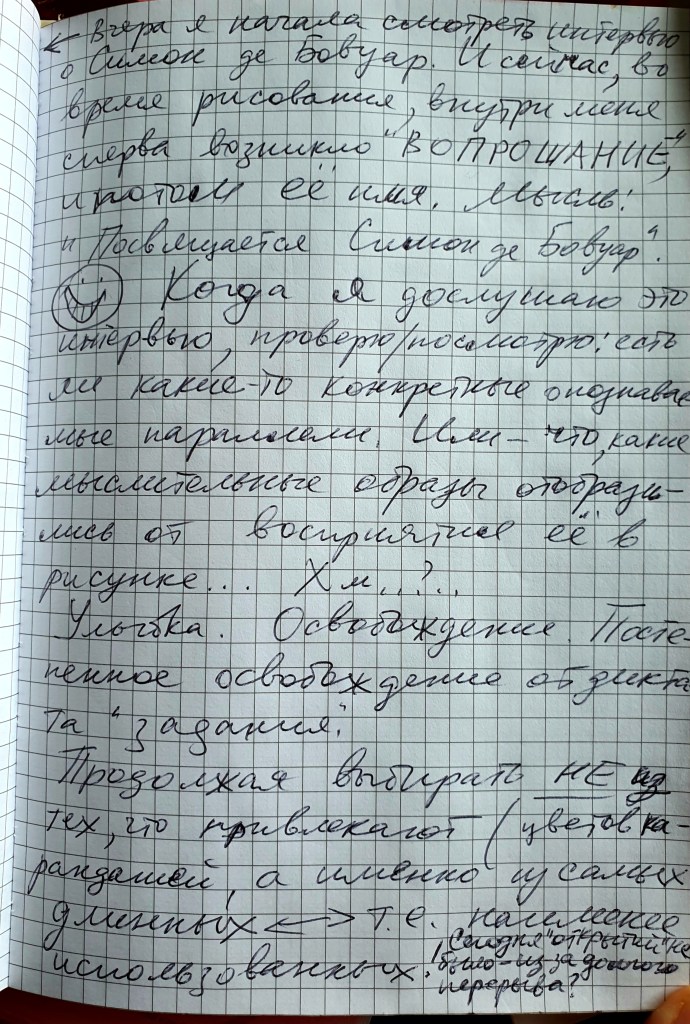 ← Вчера я начала смотреть интервью
о Симон де Бовуар. И сейчас, во
время рисования, внутри меня
сперва возникло "ВОПРОШАНИЕ",
и потом её имя. Мысль:
"Посвящается Симон де Бовуар".
Когда я дослушаю это
интервью, проверю/посмотрю: есть
ли какие-то конкретные опознавае
мые параллели. Или – что, какие
мыслительные образы отобрази-
лись от восприятия её в
рисунке... Хм...?..
Улыбка. Освобождение. Посте-
пенное освобождение от дикта
та "задания".
Продолжая выбирать НЕ из
тех, что привлекают (цветов ка-
рандашей, а именно из самых
длинных <—> т.е. наименее
использованных.
! Сегодня "открытий" не
было – из-за долгого
перерыва?